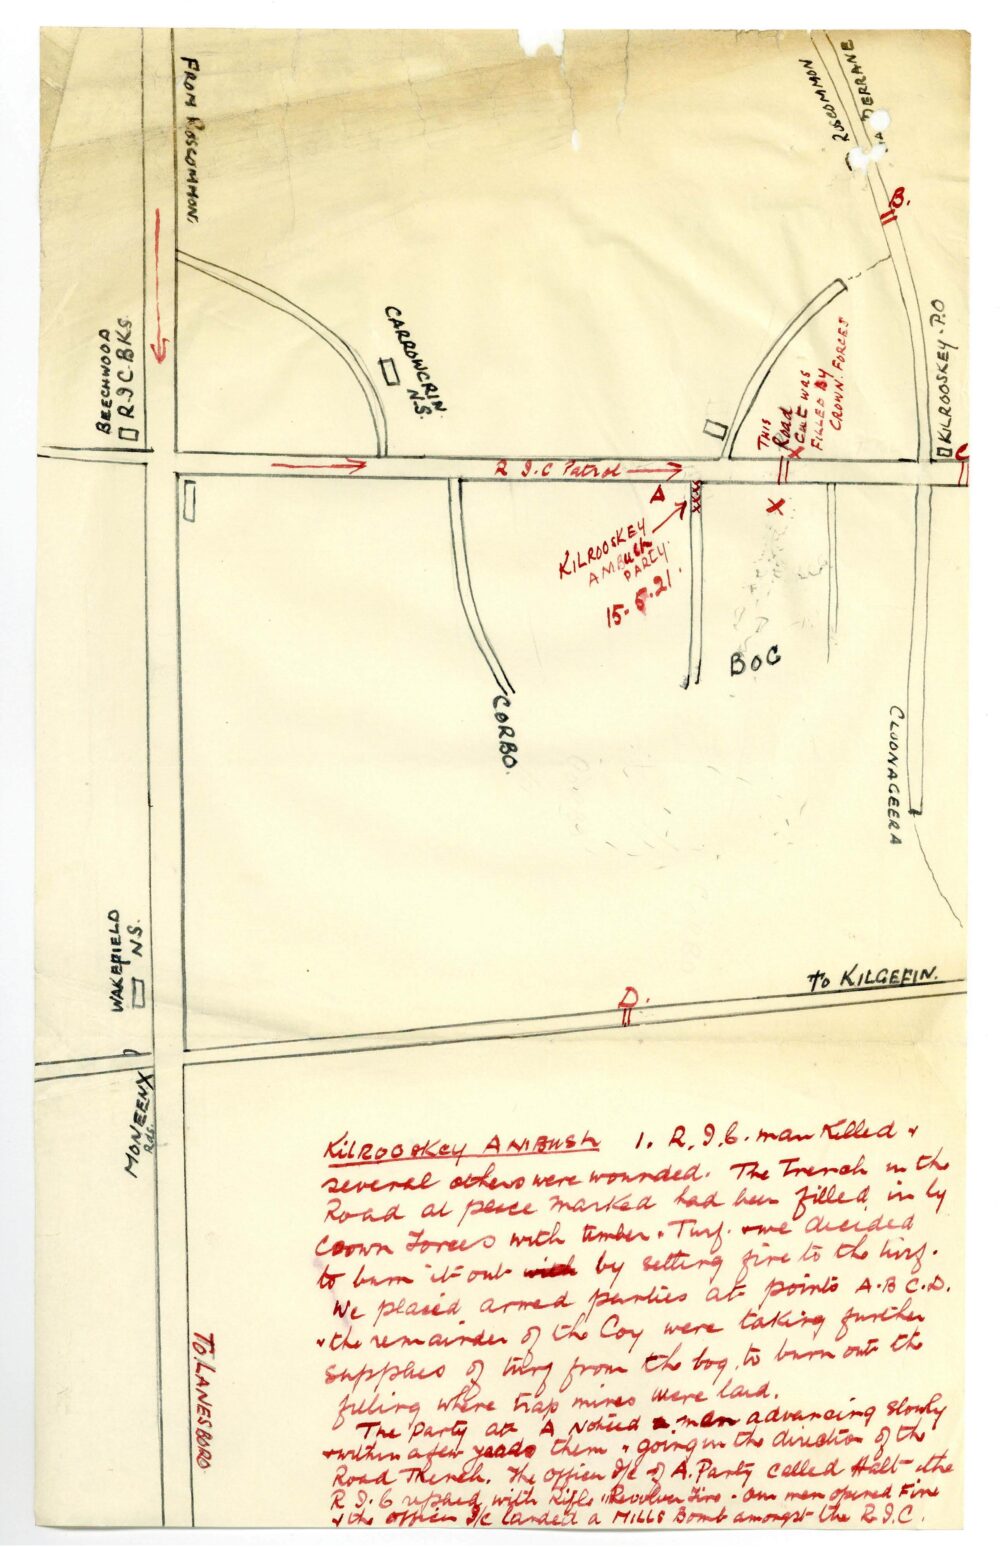 FROM ROSCOMMON.
ROSCOMMON
DERRANE
B.
BEECHWOOD
R.I.C. BKS.
CARROWCRIN
N.S.
KILROOSKEY - P.O
THIS
Road
X Cut WAS
FILLED BY
CROWN. FORCES
C
R I.C Patrol
A
X
KILROOSKEY
AMBush
PARTY.
15-5-21.
BOG
CORBO.
CLOONAGEERA
WAKEFIELD
N.S.
TO KILGEFIN.
D.
MONEEN X
Rds.
TO LANESBORO
KilROOSKey AMBUSh 1. R.I.C. man Killed &
several others were wounded. The Trench in the
Road at place marked had been filled in by
Crown Forces with timber & Turf. & we decided
to burn it out with by setting fire to the turf.
We placed armed parties at points A.B.C.D.
& the remainder of the Coy were taking further
supplies of turf from the bog, to burn out the
filling where trap mines were laid.
The Party at A Noticed a men advancing slowly
& within a few yards them & going in the direction of the
Road Trench. The officer I/c of A. Party called Halt & the
R.I.C replied with Rifle & Revolver Fire. Our men opened Fire
& the officer I/c landed a MILLS Bomb amongst the R.I.C.